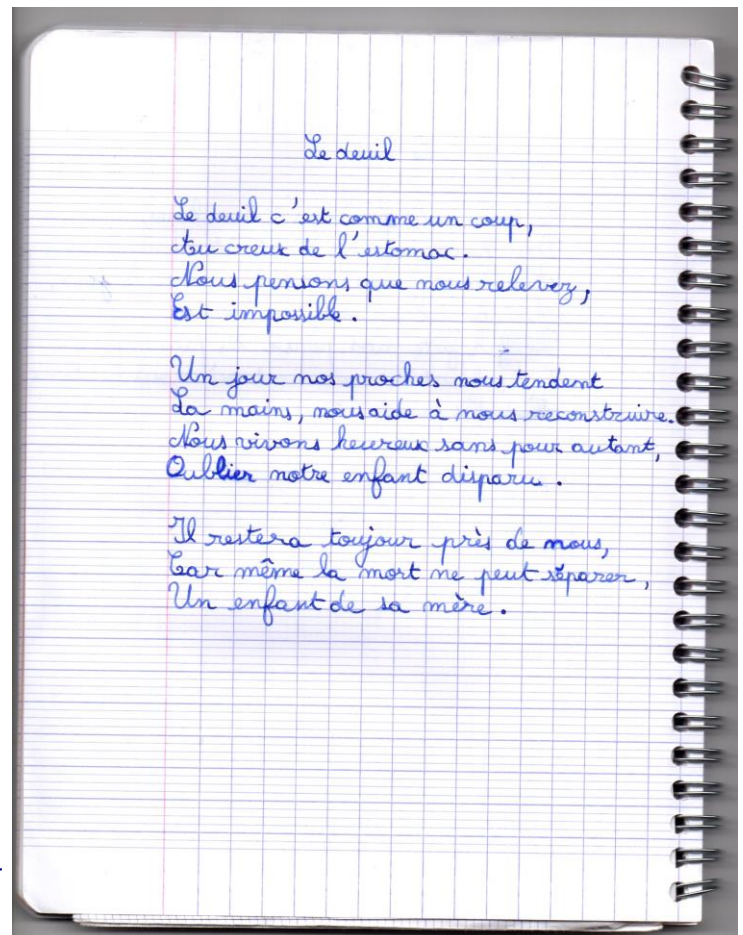 Le deuil
Le deuil c'est comme un coup,
Au creux de l'estomac.
Nous pensons que nous relevez,
Est impossible.
Un jour nos proches nous tendent
La mains, nous aide à nous reconstruire.
Nous vivons heureux sans pour autant,
Oublier notre enfant disparu.
Il restera toujour près de nous,
Car même la mort ne peut séparer,
Un enfant de sa mère.